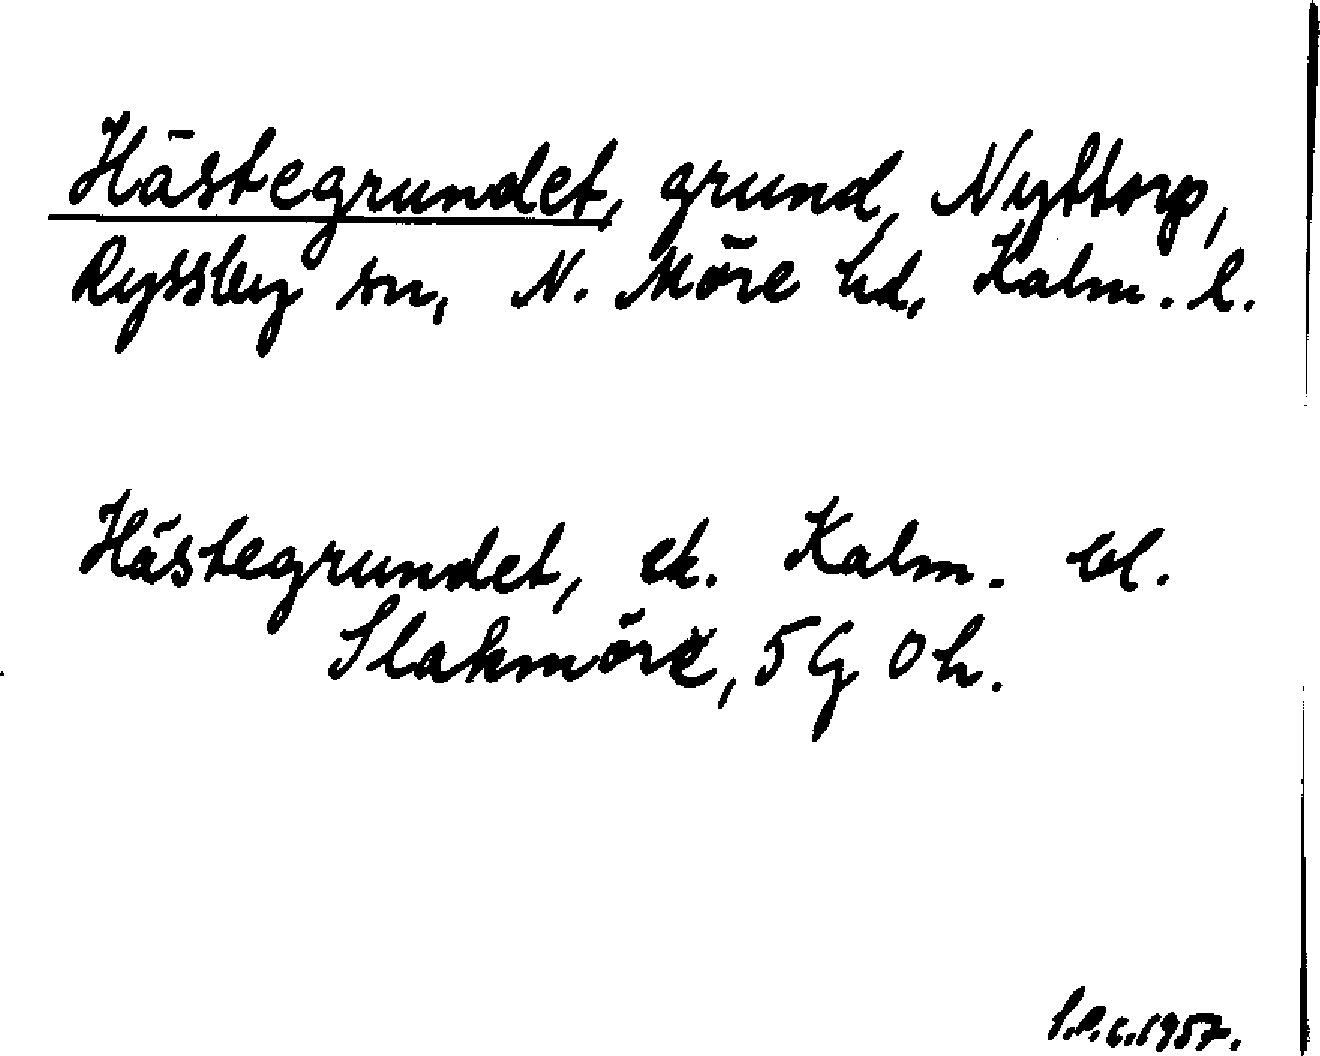 Hästegrundet, grund, Nyttorp,
Ryssby sn, N. Möre hd, Kalm. l.
Hästegrundet, ek. Kalm. bl.
Slakmöre, 5 G 0 h.
1957.